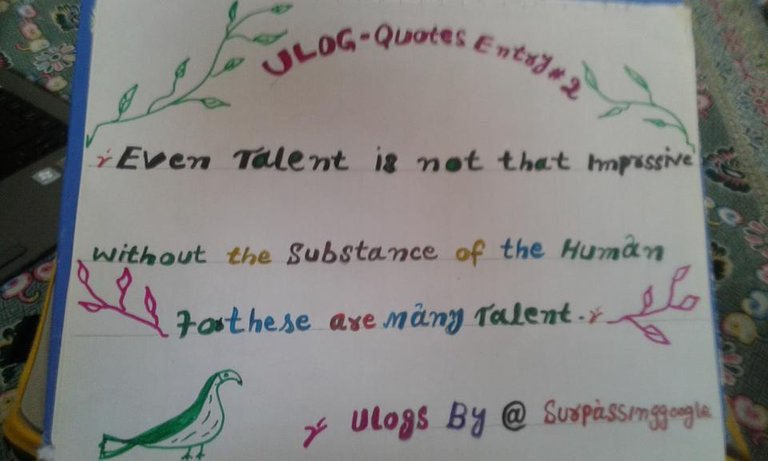 ULOG-Quotes Entry#2
Even Talent is not that Imprssive
without the Substance of the Human
For these are many Talent.
Ulogs By @ Surpassinggoogle